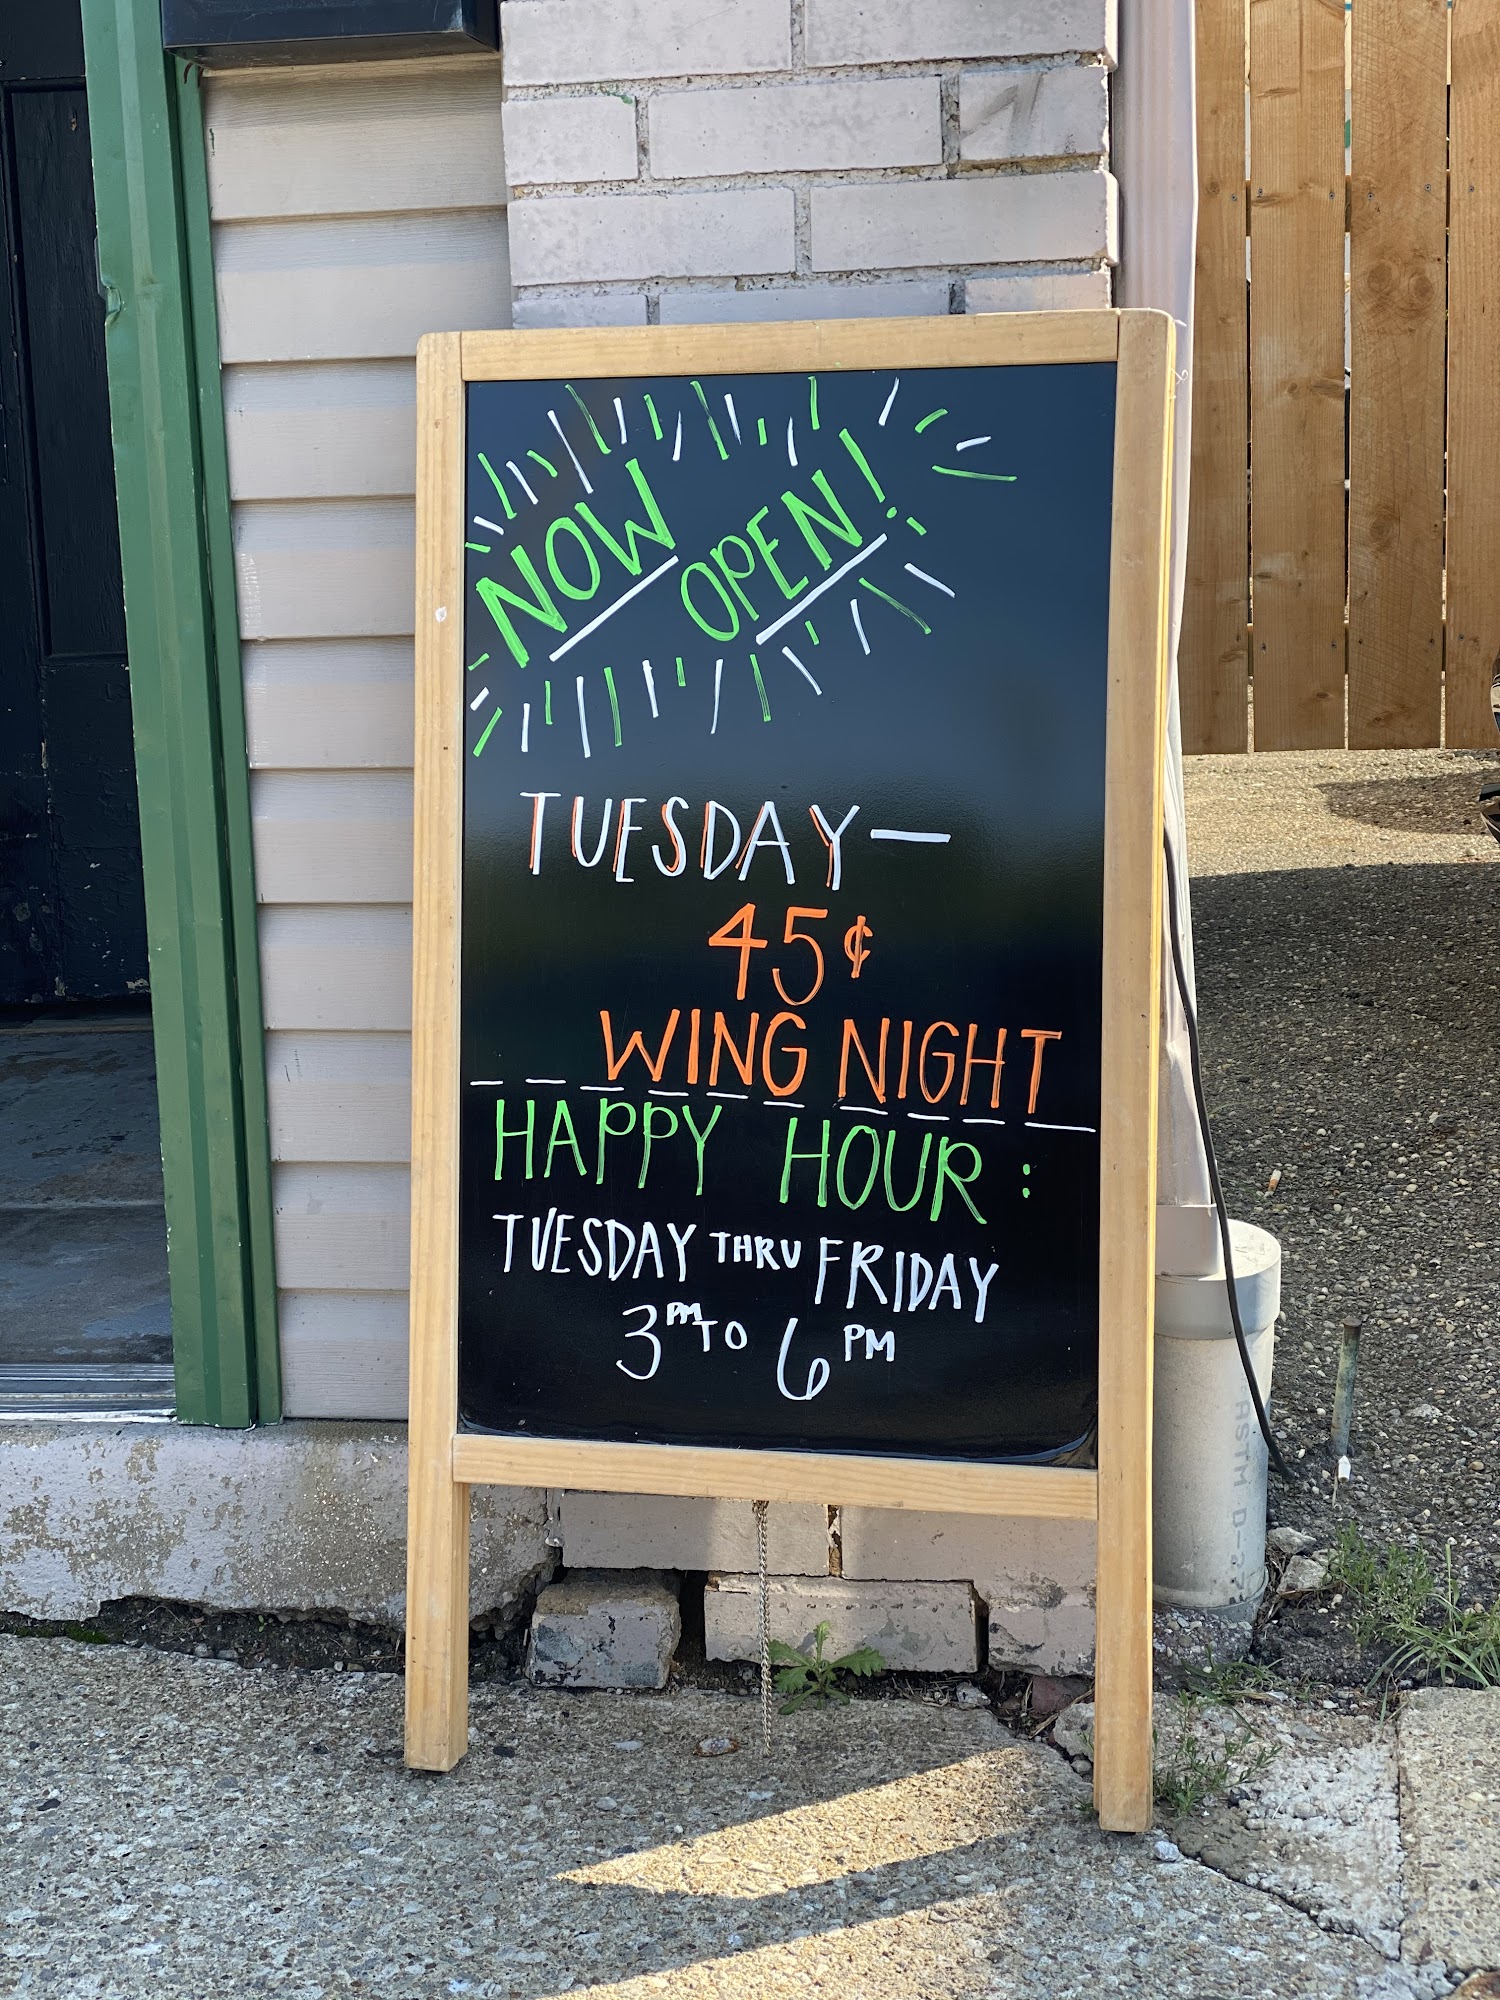 NOW OPEN!
TUESDAY—
45¢
WING NIGHT
HAPPY HOUR:
TUESDAY THRU FRIDAY
3PM TO 6PM
ASTM D-